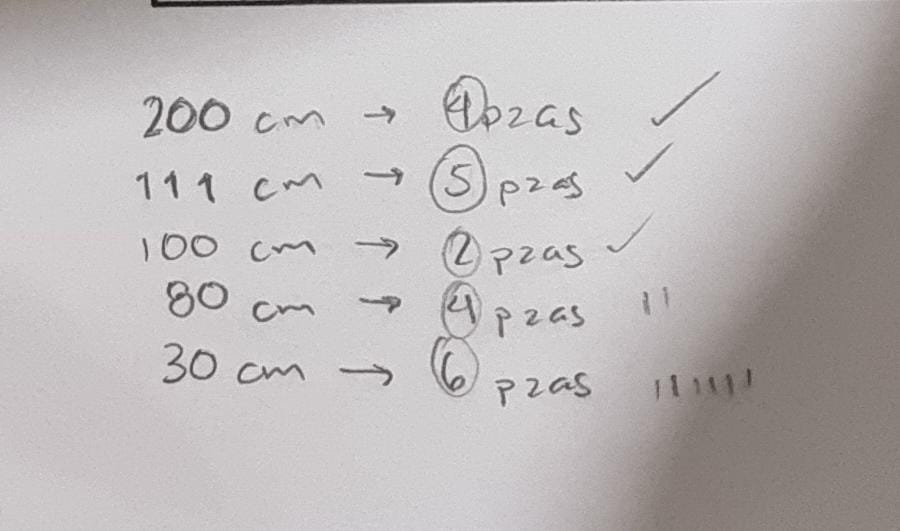 200 cm → 4 pzas ✓
111 cm → 5 pzas ✓
100 cm → 2 pzas ✓
80 cm → 4 pzas ||
30 cm → 6 pzas ||||||